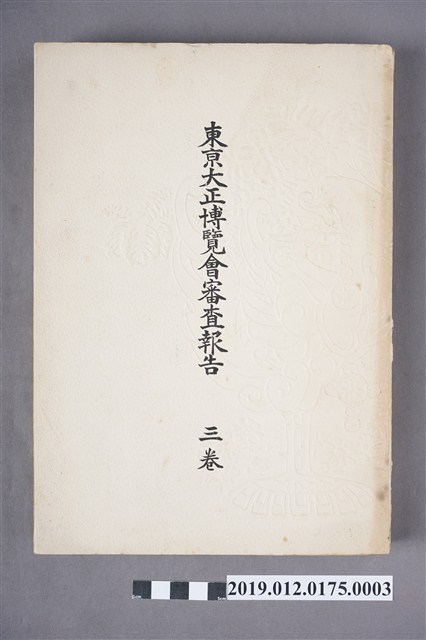 東京大正博覽會審査報告 三卷
2019.012.0175.0003